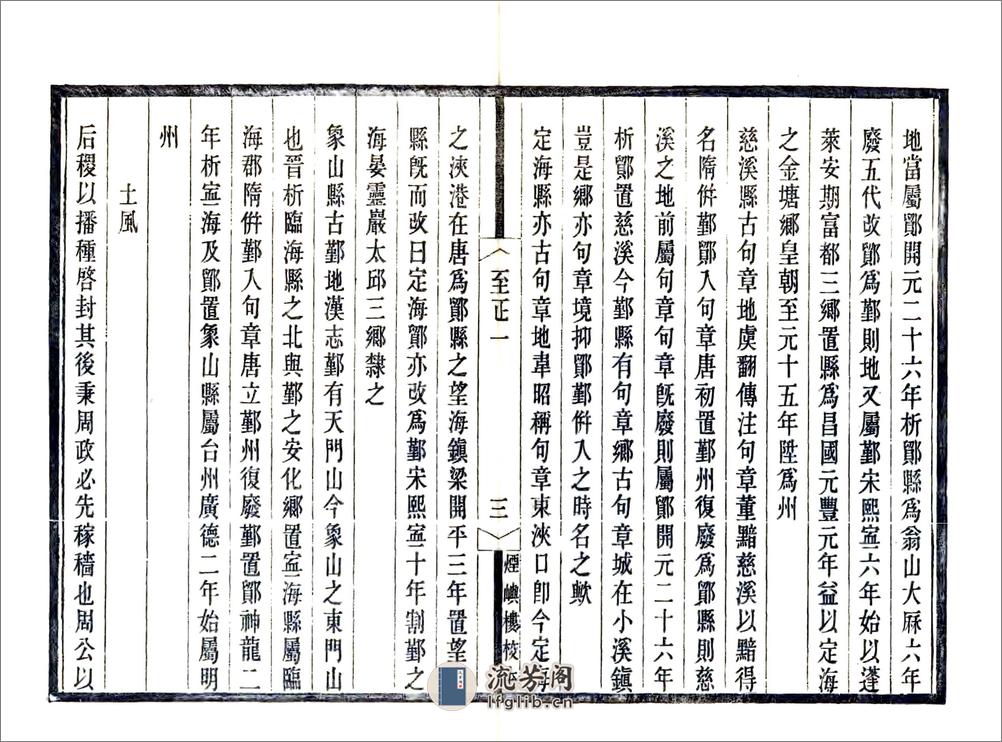 地當屬鄮開元二十六年析鄮縣爲翁山大厤六年
廢五代改鄮爲鄞則地又屬鄞宋熙寧六年始以蓬
萊安期富都三鄉置縣爲昌國元豐元年益以定海
之金塘鄉皇朝至元十五年陞爲州
慈溪縣古句章地虞翻傳注句章董黯慈溪以黯得
名隋併鄞鄮入句章唐初置鄞州復廢爲鄮縣則慈
溪之地前屬句章句章旣廢則屬鄮開元二十六年
析鄮置慈溪今鄞縣有句章鄉古句章城在小溪鎮
豈是鄉亦句章境抑鄮鄞併入之時名之歟
定海縣亦古句章地韋昭稱句章東浹口卽今定海
至正一
三
煙嶼樓校
之浹港在唐爲鄮縣之望海鎮梁開平三年置望
縣旣而改曰定海鄮亦改爲鄞宋熙寧十年割鄞之
海晏靈巖太邱三鄉隸之
象山縣古鄞地漢志鄞有天門山今象山之東門山
也晉析臨海縣之北與鄞之安化鄉置寧海縣屬臨
海郡隋併鄞入句章唐立鄞州復廢鄞置鄮神龍二
年析寧海及鄮置象山縣屬台州廣德二年始屬明
州
土風
后稷以播種啓封其後秉周政必先稼穡也周公以
流芳阁
lfglib.cn